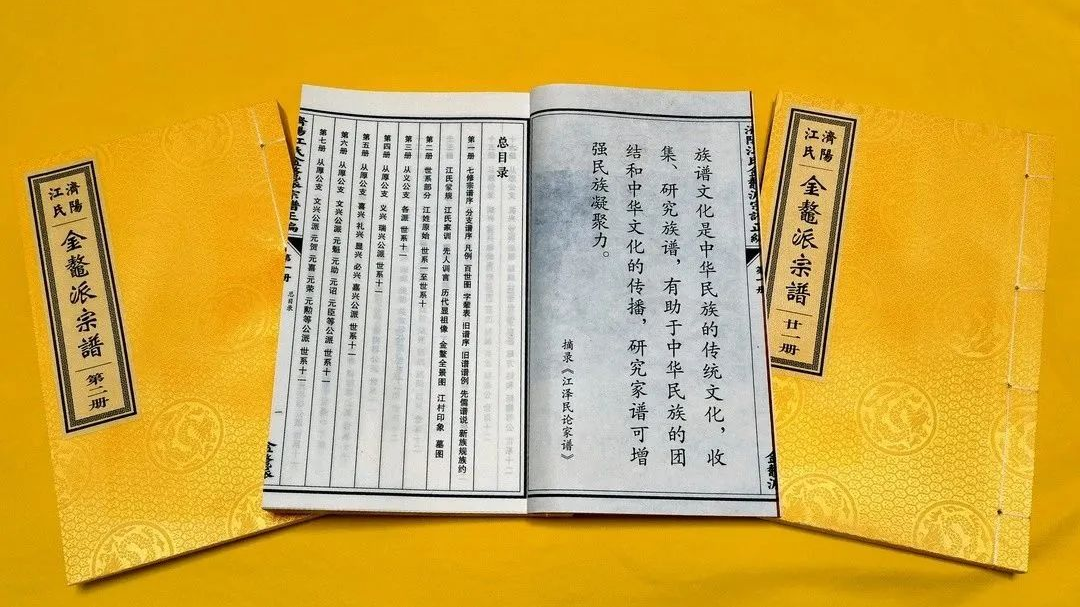 濟陽
江氏
金鰲派宗譜
第二册
濟陽江氏金鰲派宗譜正編
第一册
总目录
一
金鰲派
总目录
第一册 七修宗谱序 分支谱序 凡例 百世图 字辈表 旧谱序 旧谱谱例 先儒谱说 新族规族约
江氏家规 江氏家训 先人训言 历代显祖像 金鳌全景图 江村印象 墓图
第二册 世系部分 江姓原始 世系一至世系十
第三册 从义公支 各派 世系十一
第四册 从厚公支 义兴 瑞兴公派 世系十一
第五册 从厚公支 嘉兴 礼兴 显兴 必兴 嘉兴公派 世系十一
第六册 从厚公支 文兴公派 元魁 元助 元诏 元臣等公派 世系十一
第七册 从厚公支 文兴公派 元贺 元喜 元荣 元勲等公派 世系十一
族谱文化是中华民族的传统文化，收
集、研究族谱，有助于中华民族的团
结和中华文化的传播，研究家谱可增
强民族凝聚力。
摘录《江泽民论家谱》
濟陽江氏金鰲派宗譜正編
第一册
金鰲派
濟陽
江氏
金鰲派宗譜
廿一册